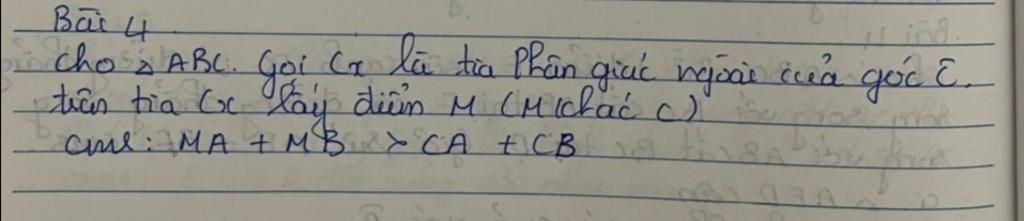 Bài 4
Cho △ABC. Gọi Cx là tia phân giác ngoài của góc C.
trên tia Cx lấy điểm M (M khác C)
cmr: MA + MB > CA + CB